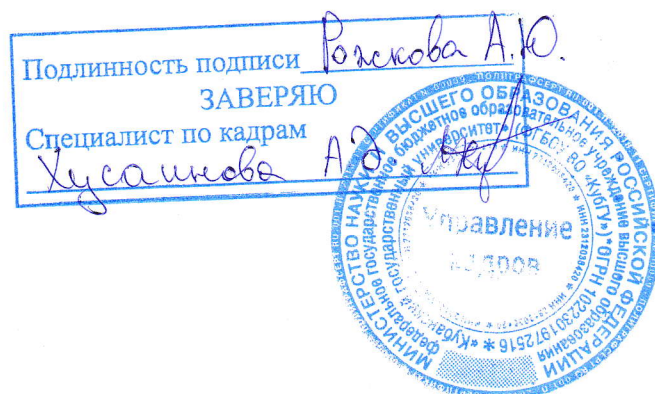 Подлинность подписи Рожкова А.Ю.
ЗАВЕРЯЮ
Специалист по кадрам
Хусаинова А.Э
МИНИСТЕРСТВО НАУКИ И ВЫСШЕГО ОБРАЗОВАНИЯ РОССИЙСКОЙ ФЕДЕРАЦИИ
федеральное государственное бюджетное образовательное учреждение высшего образования
«Кубанский государственный университет» (ФГБОУ ВО «КубГУ») * ОГРН 1022301972516 *
* ИНН 2312038420 *
Управление
кадров